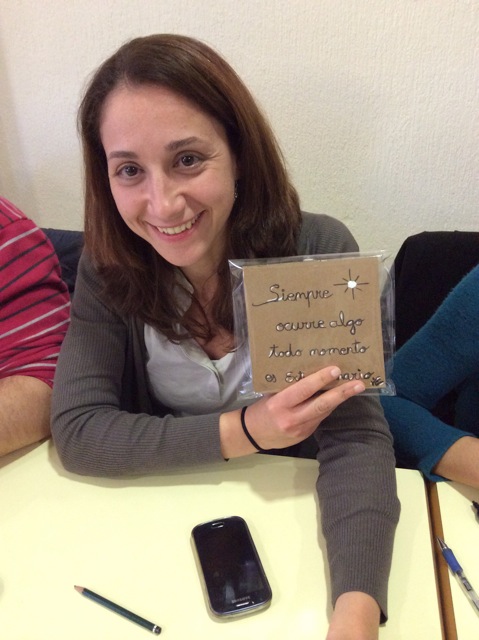 Siempre
ocurre algo
todo momento
es
SAMSUNG